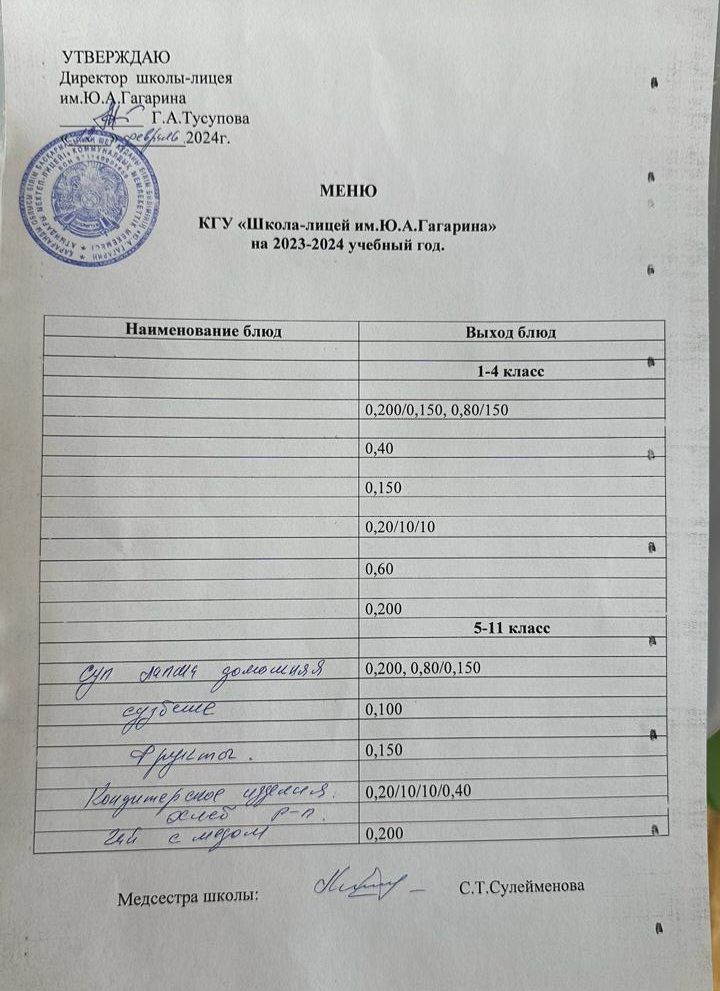 УТВЕРЖДАЮ
Директор школы-лицея
им.Ю.А.Гагарина
Г.А.Тусупова
«12» февраль 2024г.
МЕНЮ
КГУ «Школа-лицей им.Ю.А.Гагарина»
на 2023-2024 учебный год.
Наименование блюд Выход блюд
1-4 класс
0,200/0,150, 0,80/150
0,40
0,150
0,20/10/10
0,60
0,200
5-11 класс
Суп лапша домашняя 0,200, 0,80/0,150
сузбеше 0,100
Фрукты. 0,150
Кондитерское изделия. 0,20/10/10/0,40
Хлеб р-п.
Чай с медом 0,200
Медсестра школы: С.Т.Сулейменова